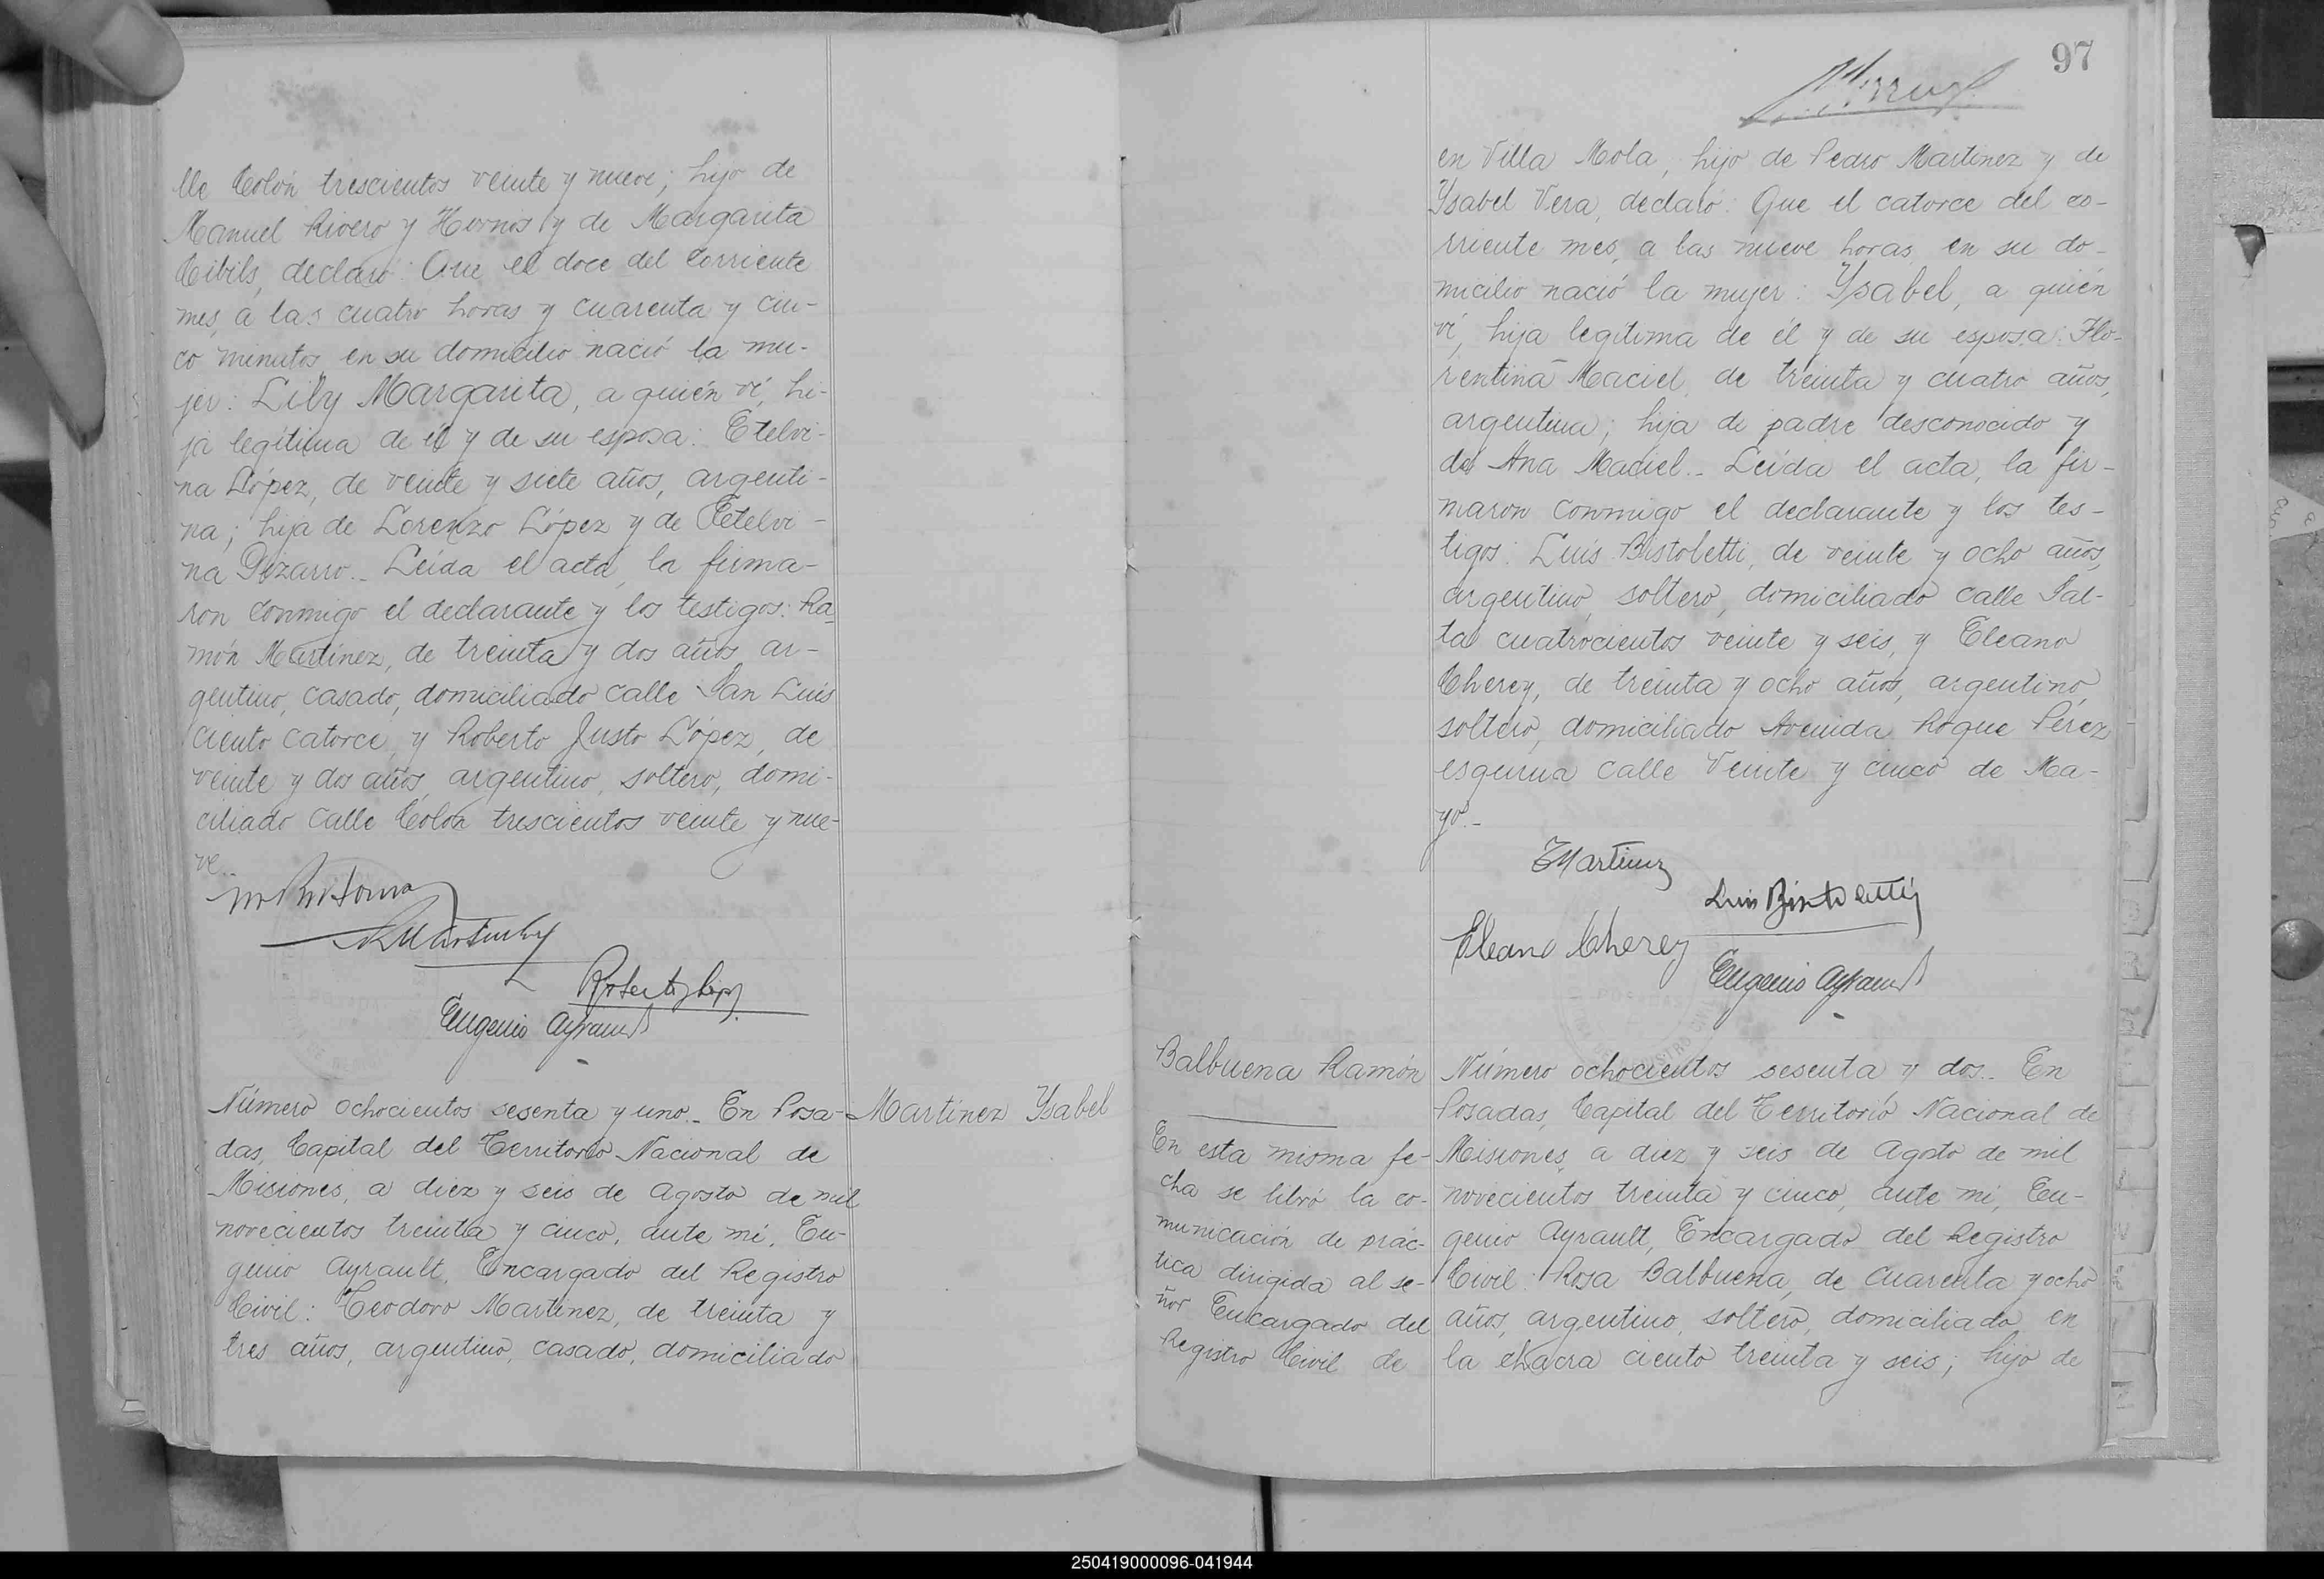 lle Colón trescientos veinte y nueve; hijo de
Manuel Rivero y Hornos y de Margarita
Cibils, declaró: Que el doce del corriente
mes, a las cuatro horas y cuarenta y cin-
co minutos, en su domicilio nació la mu-
jer: Lily Margarita, a quién ví, hi-
ja legítima de él y de su esposa: Etelvi-
na López, de veinte y siete años, argenti-
na; hija de Lorenzo López y de Etelvi-
na Pizarro.- Leída el acta, la firma-
ron conmigo el declarante y los testigos: Ra-
món Martínez, de treinta y dos años, ar-
gentino, casado, domiciliado calle San Luis
ciento catorce, y Roberto Justo López, de
veinte y dos años, argentino, soltero, domi-
ciliado calle Colón trescientos veinte y nue-
ve.
Eugenio Ayrault
Número ochocientos sesenta y uno.- En Posa-
das, Capital del Territorio Nacional de
Misiones, a diez y seis de Agosto de mil
novecientos treinta y cinco, ante mí, Eu-
genio Ayrault, Encargado del Registro
Civil: Teodoro Martínez, de treinta y
tres años, argentino, casado, domiciliado
Martínez Ysabel
97
en Villa Mola, hijo de Pedro Martínez y de
Ysabel Vera, declaró: Que el catorce del co-
rriente mes, a las nueve horas, en su do-
micilio nació la mujer: Ysabel, a quién
ví, hija legítima de él y de su esposa: Flo-
rentina Maciel, de treinta y cuatro años,
argentina; hija de padre desconocido y
de Ana Maciel.- Leída el acta, la fir-
maron conmigo el declarante y los tes-
tigos: Luis Bistoletti, de veinte y ocho años,
argentino, soltero, domiciliado calle Sal-
ta cuatrocientos veinte y seis, y Eleano
Cherey, de treinta y ocho años, argentino,
soltero, domiciliado Avenida Roque Pérez
esquina calle Veinte y cinco de Ma-
yo.-
TMartinez
Luis Bistoletti
Eleano Cherey
Eugenio Ayrault
Balbuena Ramón
En esta misma fe-
cha se libró la co-
municación de prác-
tica dirigida al se-
ñor Encargado del
Registro Civil de
Número ochocientos sesenta y dos.- En
Posadas, Capital del Territorio Nacional de
Misiones, a diez y seis de Agosto de mil
novecientos treinta y cinco, ante mí, Eu-
genio Ayrault, Encargado del Registro
Civil: Rosa Balbuena, de cuarenta y ocho
años, argentino, soltero, domiciliado en
la chacra ciento treinta y seis; hijo de
250419000096-041944